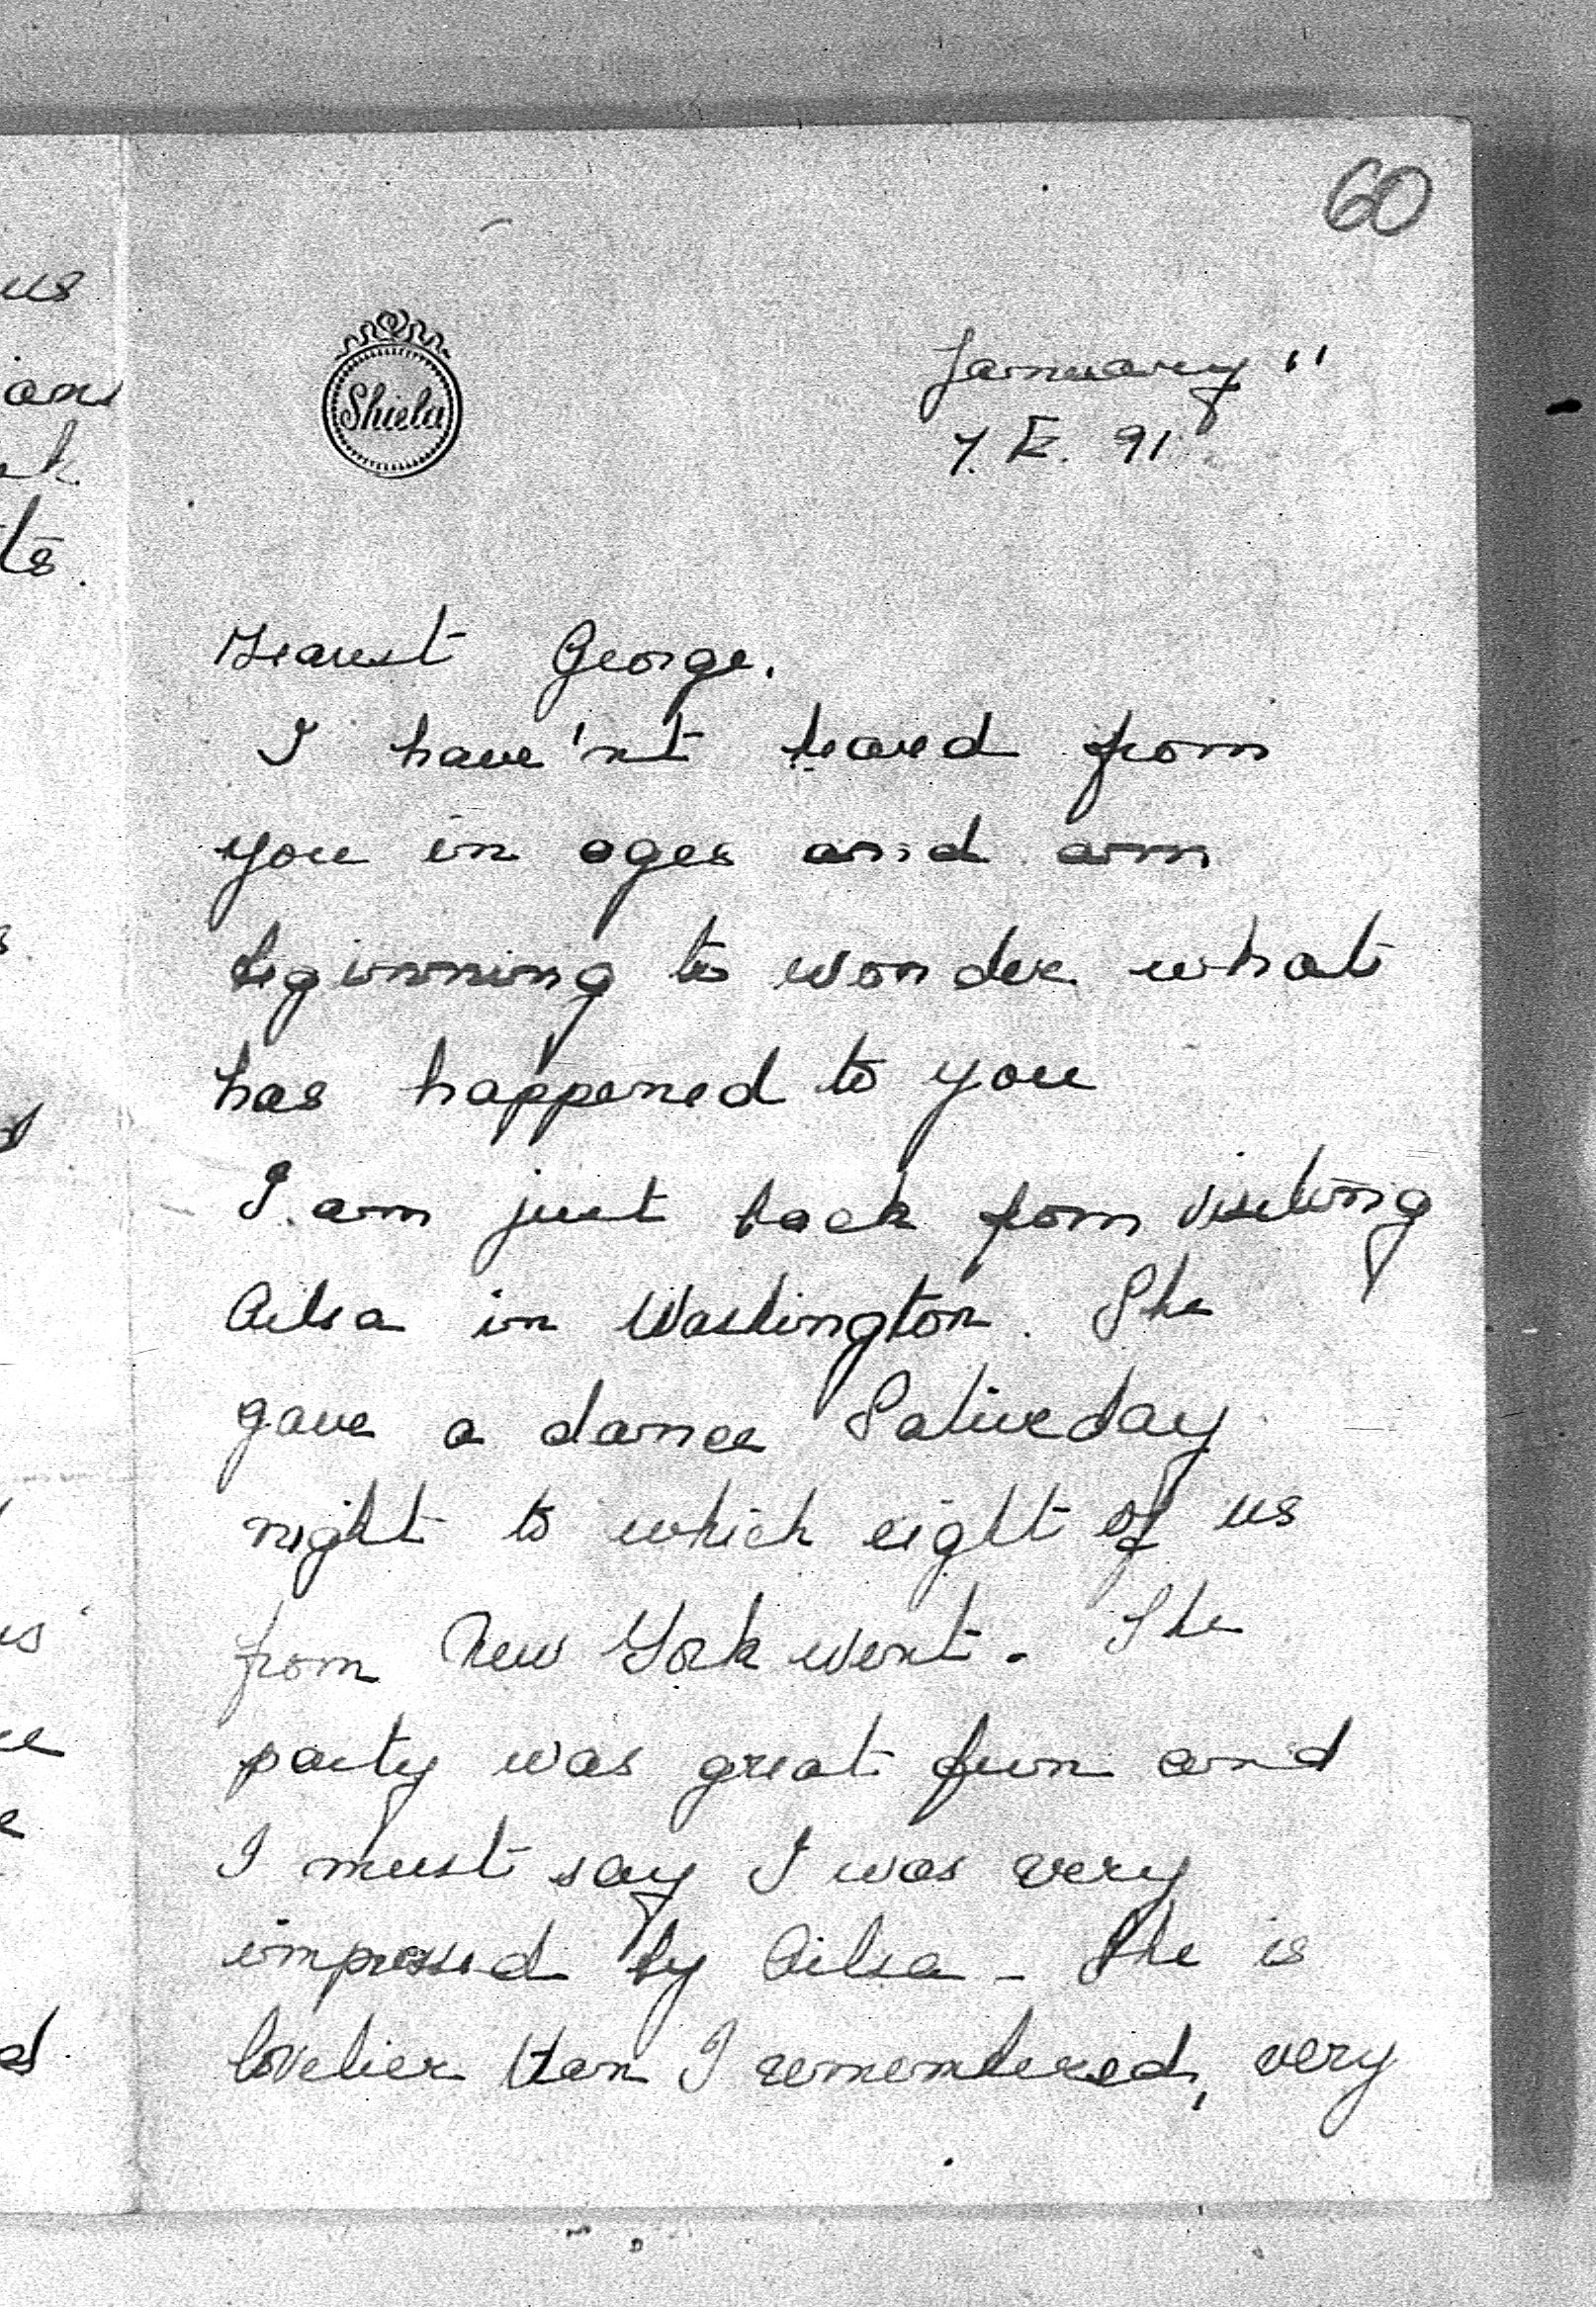 60
Shiela
January 11
7. E. 91
Dearest George.
I have'nt heard from
you in ages and am
beginning to wonder what
has happened to you
I am just back from visiting
Ailsa in Washington. She
gave a dance Saturday
night to which eight of us
from New York went - The
party was great fun and
I must say I was very
impressed by Ailsa - She is
lovelier than I remembered, very